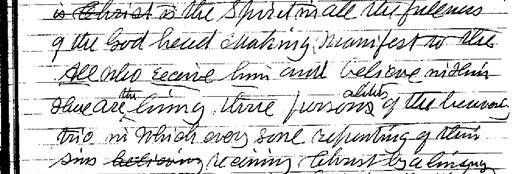 is Christ is the Spirit in all the fullness
of the God head making manifest to the
All who receive him and believe in him
There are the living three personalities of the heavenly
trio in which every soul repenting of their
sins believing receiving Christ by a living